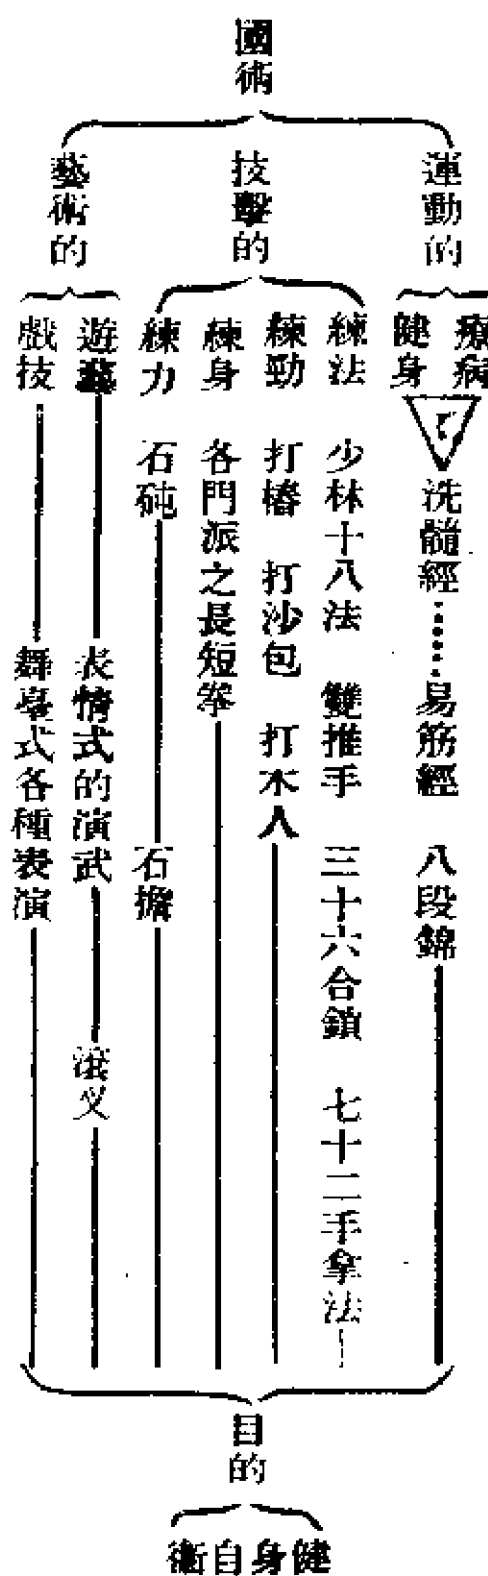 國術
運動的
療病
健身
洗髓經……易筋經 八段錦
技擊的
練法 少林十八法 雙推手 三十六合鎖 七十二手拿法
練勁 打樁 打沙包 打木人
練身 各門派之長短拳
練力 石砘 石擔
藝術的
遊藝 表情式的演武 滾叉
戲技 舞臺式各種表演
目的
健身自衞